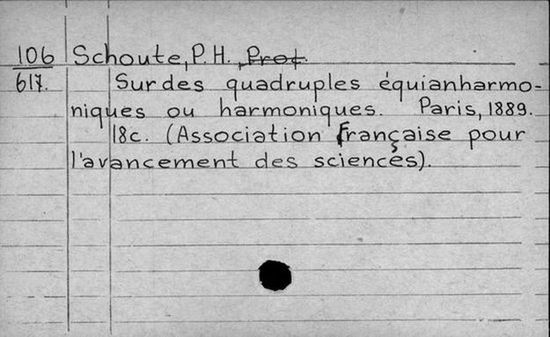 106 Schoute, P.H., Prof.
617. Sur des quadruples équianharmo-
niques ou harmoniques. Paris, 1889.
18c. (Association française pour
l'avancement des sciences).